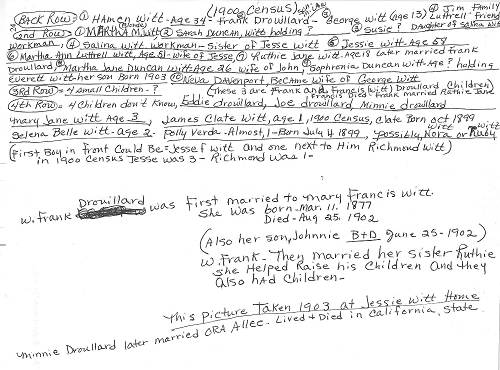 (1900 Census) son in law ④ Jim Family
Back Row: ① Hamen Witt-Age 34 - Frank Drouillard - George Witt (Age 13) Luttrell Friend
2nd Row → ① Martha M. Witt ② Sarah Duncan, Witt holding? ③ Susie? Daughter of Salina Witt
Workman, ④ Salina Witt Workman - Sister of Jesse Witt ⑤ Jessie Witt-Age 58
⑥ Martha Ann Luttrell Witt, Age 51- Wife of Jesse, ⑦ Ruthie Jane Witt Age 18 later married Frank
Drouillard, ⑧ Martha Jane Duncan Witt-Age 26 wife of John, Sophronia Duncan Witt-Age? holding
Everett Witt-her son Born 1903 ⑩ Nova Davenport, Became Wife of George Witt
3rd Row = 4 Small Children -? (These 3 are Frank and Francis (Witt) Drouillard Children)
Francis Died- Frank married Ruthie Jane
4th Row = 4 Children don't Know, Eddie drouillard, Joe drouillard Minnie drouillard
Mary Jane Witt Age 3, James Clate Witt, age 1, 1900 Census, Clate Born Oct 1899
Selena Belle Witt-Age 2- Polly Verda-Almost, 1-Born July 4 1899, Possibly, Nora Witt or Ruby Witt
(First Boy in Front Could Be = Jesse F Witt and one next to Him Richmond Witt)
in 1900 Census Jesse was 3 - Richmond Was 1-
W. Frank Drouillard was First married to Mary Francis Witt
She was born-Mar. 11. 1877
Died-Aug 25. 1902
(Also her son, Johnnie B+D June 25-1902)
W. Frank- They married Her Sister Ruthie
She Helped Raise his Children and they
Also had Children-
This Picture Taken 1903 at Jessie Witt Home
Minnie Droullard later married ORA Allec- Lived + Died in California, State